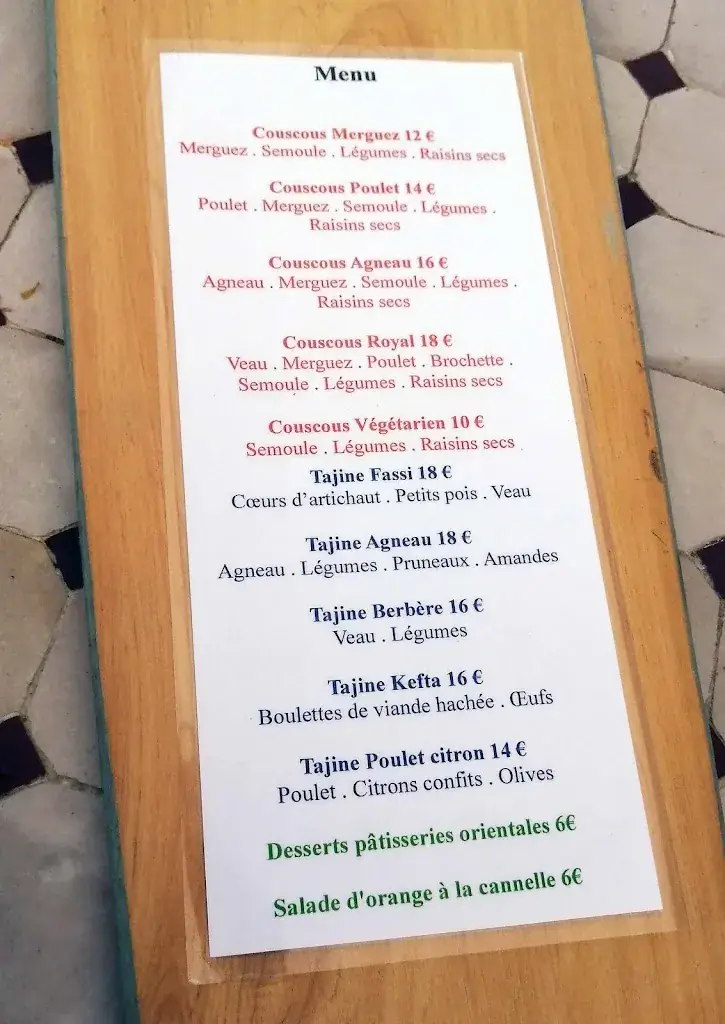 Menu
Couscous Merguez 12 €
Merguez . Semoule . Légumes . Raisins secs
Couscous Poulet 14 €
Poulet . Merguez . Semoule . Légumes .
Raisins secs
Couscous Agneau 16 €
Agneau . Merguez . Semoule . Légumes .
Raisins secs
Couscous Royal 18 €
Veau . Merguez . Poulet . Brochette .
Semoule . Légumes . Raisins secs
Couscous Végétarien 10 €
Semoule . Légumes . Raisins secs
Tajine Fassi 18 €
Cœurs d’artichaut . Petits pois . Veau
Tajine Agneau 18 €
Agneau . Légumes . Pruneaux . Amandes
Tajine Berbère 16 €
Veau . Légumes
Tajine Kefta 16 €
Boulettes de viande hachée . Œufs
Tajine Poulet citron 14 €
Poulet . Citrons confits . Olives
Desserts pâtisseries orientales 6€
Salade d'orange à la cannelle 6€